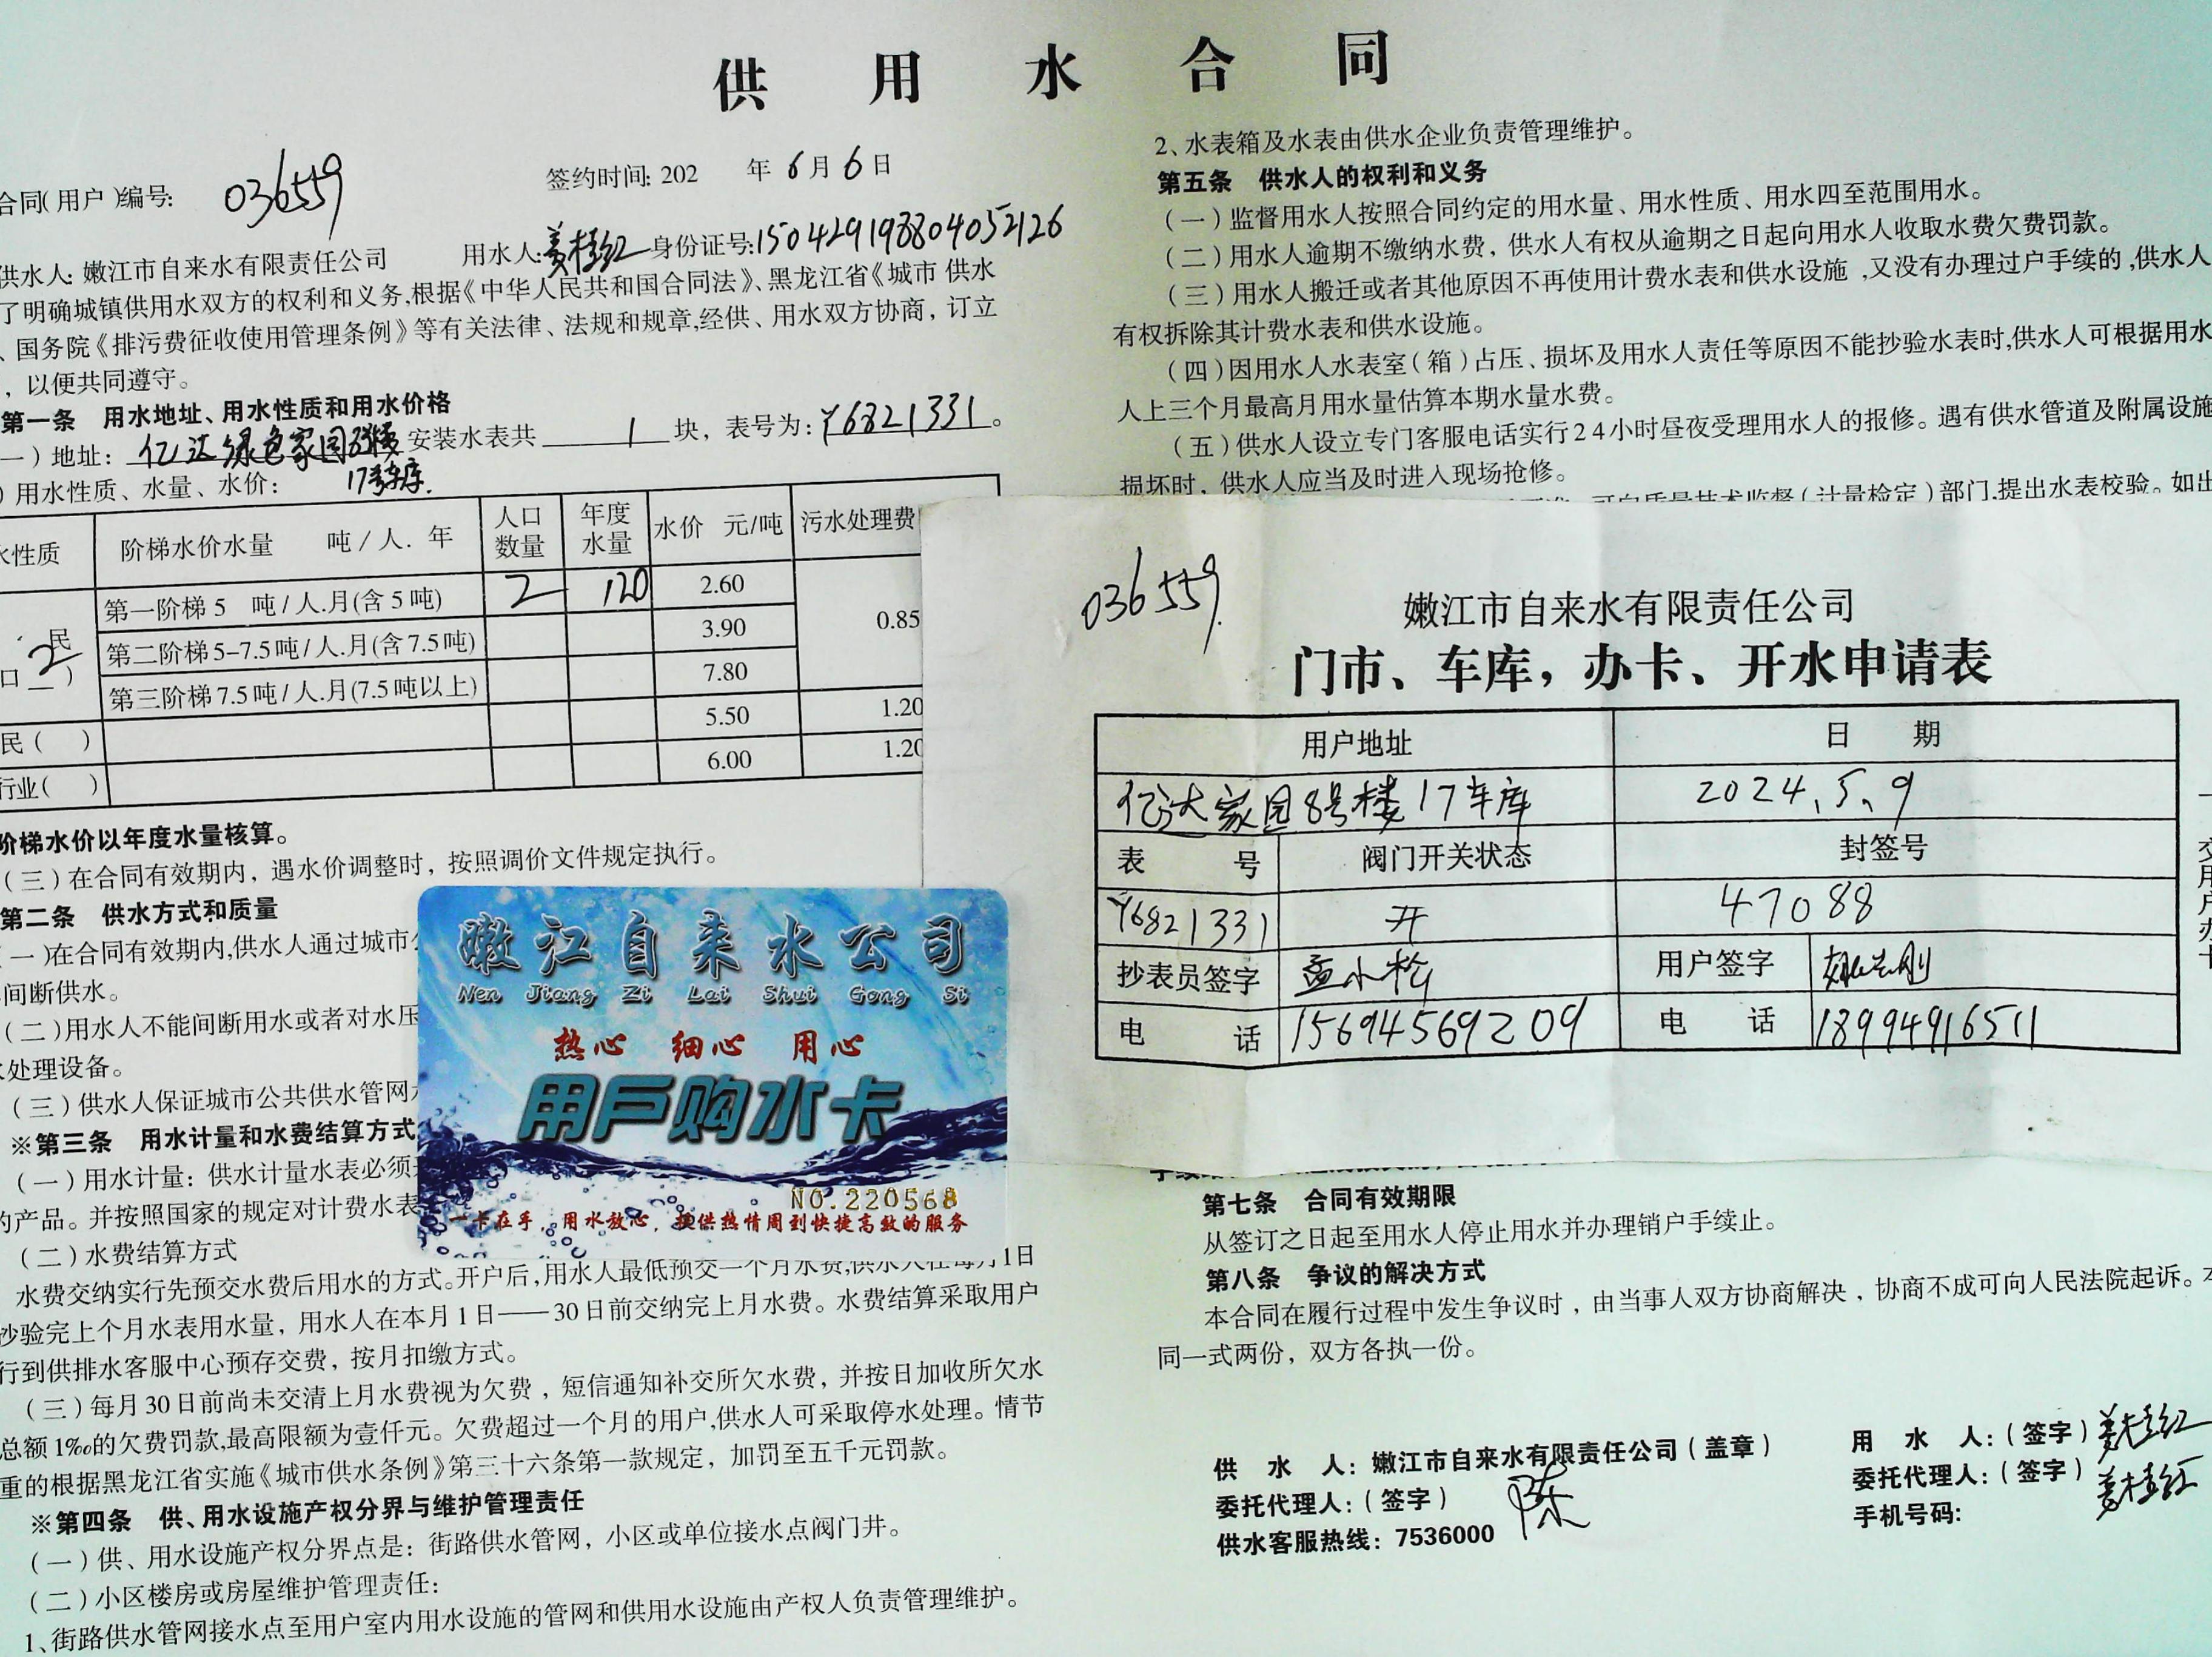 供用水合同
合同(用户)编号: 036559
签约时间: 202 年 6 月 6 日
供水人: 嫩江市自来水有限责任公司 用水人: 姜桂红 身份证号: 150429198804052126
了明确城镇供用水双方的权利和义务,根据《中华人民共和国合同法》、黑龙江省《城市 供水
、国务院《排污费征收使用管理条例》等有关法律、法规和规章,经供、用水双方协商，订立
，以便共同遵守。
第一条 用水地址、用水性质和用水价格
一）地址: 亿达绿色家园 安装水表共 1 块，表号为: Y6821331。
17号车库.
）用水性质、水量、水价:
水性质 阶梯水价水量 吨/人.年 人口数量 年度水量 水价 元/吨 污水处理费
民 第一阶梯5 吨/人.月(含5吨) 2 120 2.60 0.85
口 2 ) 第二阶梯5-7.5吨/人.月(含7.5吨) 3.90
第三阶梯7.5吨/人.月(7.5吨以上) 7.80
民( ) 5.50 1.20
行业( ) 6.00 1.20
阶梯水价以年度水量核算。
(三)在合同有效期内，遇水价调整时，按照调价文件规定执行。
第二条 供水方式和质量
(一)在合同有效期内,供水人通过城市公
间断供水。
(二)用水人不能间断用水或者对水压
水处理设备。
(三)供水人保证城市公共供水管网水
※第三条 用水计量和水费结算方式
(一)用水计量: 供水计量水表必须
的产品。并按照国家的规定对计费水表
(二)水费结算方式
水费交纳实行先预交水费后用水的方式。开户后,用水人最低预交一个月水费,供水人在每月1日
抄验完上个月水表用水量，用水人在本月1日——30日前交纳完上月水费。水费结算采取用户
行到供排水客服中心预存交费，按月扣缴方式。
(三)每月30日前尚未交清上月水费视为欠费，短信通知补交所欠水费，并按日加收所欠水
总额1‰的欠费罚款,最高限额为壹仟元。欠费超过一个月的用户,供水人可采取停水处理。情节
重的根据黑龙江省实施《城市供水条例》第三十六条第一款规定，加罚至五千元罚款。
※第四条 供、用水设施产权分界与维护管理责任
(一)供、用水设施产权分界点是: 街路供水管网，小区或单位接水点阀门井。
(二)小区楼房或房屋维护管理责任:
1、街路供水管网接水点至用户室内用水设施的管网和供用水设施由产权人负责管理维护。
2、水表箱及水表由供水企业负责管理维护。
第五条 供水人的权利和义务
(一)监督用水人按照合同约定的用水量、用水性质、用水四至范围用水。
(二)用水人逾期不缴纳水费，供水人有权从逾期之日起向用水人收取水费欠费罚款。
(三)用水人搬迁或者其他原因不再使用计费水表和供水设施,又没有办理过户手续的,供水人
有权拆除其计费水表和供水设施。
(四)因用水人水表室(箱)占压、损坏及用水人责任等原因不能抄验水表时,供水人可根据用水
人上三个月最高月用水量估算本期水量水费。
(五)供水人设立专门客服电话实行24小时昼夜受理用水人的报修。遇有供水管道及附属设施
损坏时，供水人应当及时进入现场抢修。
可向质量技术监督(计量检定)部门,提出水表校验。如出
036559.
嫩江市自来水有限责任公司
门市、车库，办卡、开水申请表
用户地址 日 期
亿达家园8号楼17车库 2024.5.9
表 号 阀门开关状态 封签号
Y6821331 开 47088
抄表员签字 孟小松 用户签字
电 话 15694569209 电 话 18994916511
交用户办卡
嫩江自来水公司
Nen Jiang Zi Lai Shui Gong Si
热心 细心 用心
用户购水卡
NO.220568
一卡在手，用水放心，提供热情周到快捷高效的服务
第七条 合同有效期限
从签订之日起至用水人停止用水并办理销户手续止。
第八条 争议的解决方式
本合同在履行过程中发生争议时，由当事人双方协商解决，协商不成可向人民法院起诉。本
同一式两份，双方各执一份。
供 水 人: 嫩江市自来水有限责任公司(盖章)
委托代理人: (签字) 陈
供水客服热线: 7536000
用 水 人: (签字) 姜桂红
委托代理人: (签字) 姜桂红
手机号码: